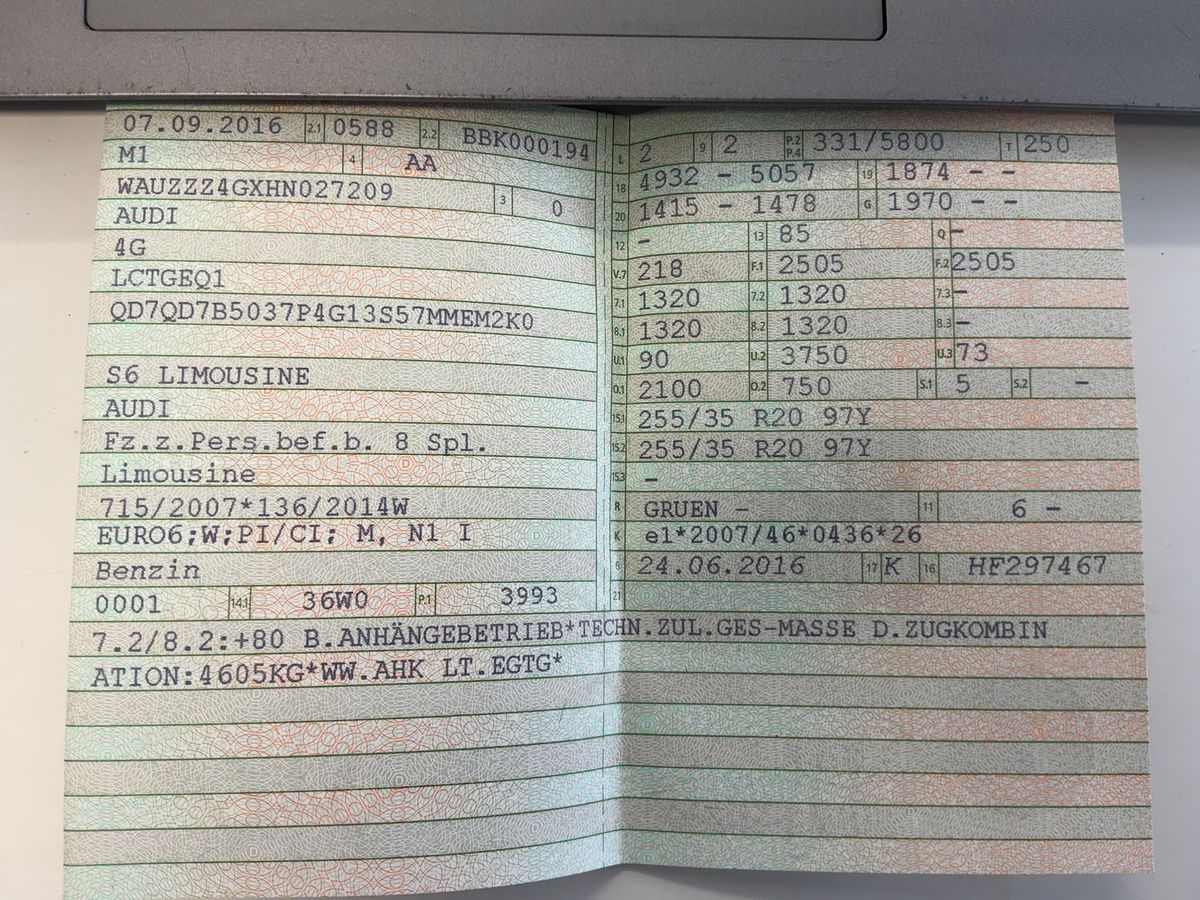 07.09.2016 2.1 0588 2.2 BBK000194
M1 4 AA
WAUZZZ4GXHN027209 3 0
AUDI
4G
LCTGEQ1
QD7QD7B5037P4G13S57MMEM2K0
S6 LIMOUSINE
AUDI
Fz.z.Pers.bef.b. 8 Spl.
Limousine
715/2007*136/2014W
EURO6;W;PI/CI; M, N1 I
Benzin
0001 14.1 36W0 P.1 3993
L 2 9 2 P.2 P.4 331/5800 T 250
18 4932 - 5057 19 1874 - -
20 1415 - 1478 G 1970 - -
12 - 13 85 Q -
V.7 218 F.1 2505 F.2 2505
7.1 1320 7.2 1320 7.3 -
8.1 1320 8.2 1320 8.3 -
U.1 90 U.2 3750 U.3 73
O.1 2100 O.2 750 S.1 5 S.2 -
15.1 255/35 R20 97Y
15.2 255/35 R20 97Y
15.3 -
R GRUEN - 11 6 -
K e1*2007/46*0436*26
6 24.06.2016 17 K 16 HF297467
21
7.2/8.2:+80 B.ANHÄNGEBETRIEB*TECHN.ZUL.GES-MASSE D.ZUGKOMBIN
ATION:4605KG*WW.AHK LT.EGTG*